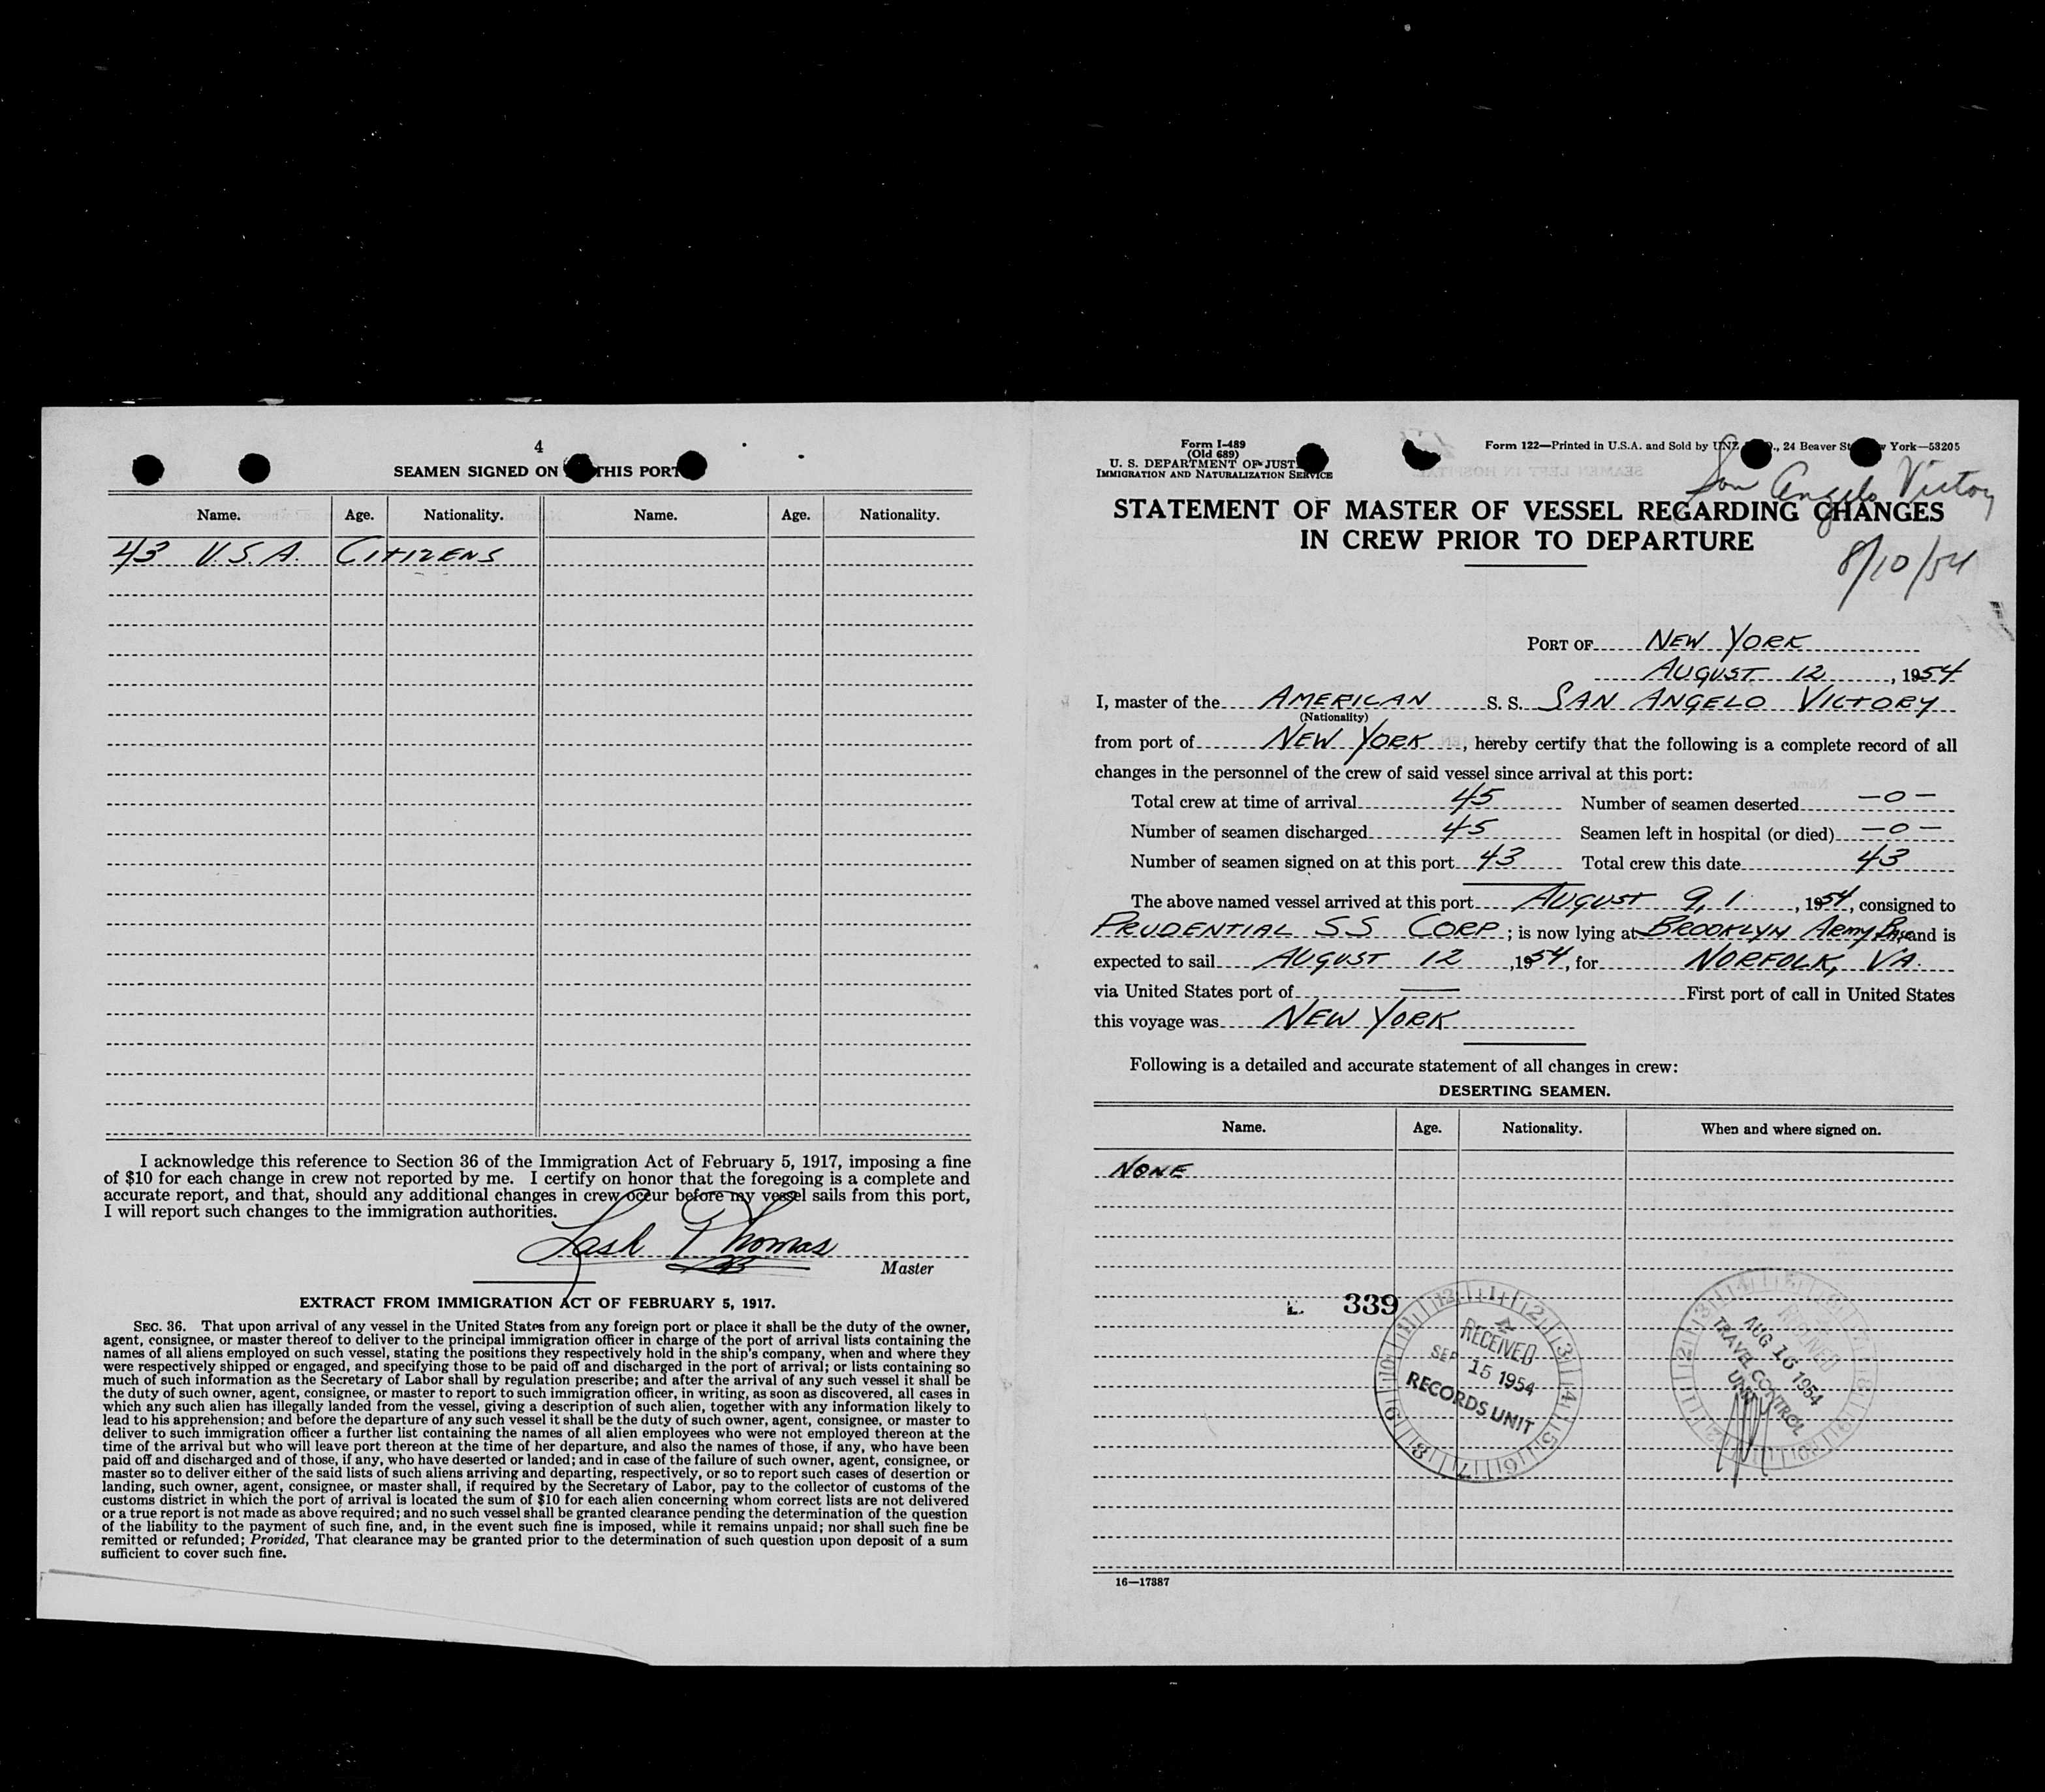 4
SEAMEN SIGNED ON THIS PORT
Name. Age. Nationality. Name. Age. Nationality.
43 U.S.A. CITIZENS
I acknowledge this reference to Section 36 of the Immigration Act of February 5, 1917, imposing a fine
of $10 for each change in crew not reported by me. I certify on honor that the foregoing is a complete and
accurate report, and that, should any additional changes in crew occur before my vessel sails from this port,
I will report such changes to the immigration authorities.
Lash Thomas
Master
EXTRACT FROM IMMIGRATION ACT OF FEBRUARY 5, 1917.
SEC. 36. That upon arrival of any vessel in the United States from any foreign port or place it shall be the duty of the owner,
agent, consignee, or master thereof to deliver to the principal immigration officer in charge of the port of arrival lists containing the
names of all aliens employed on such vessel, stating the positions they respectively hold in the ship's company, when and where they
were respectively shipped or engaged, and specifying those to be paid off and discharged in the port of arrival; or lists containing so
much of such information as the Secretary of Labor shall by regulation prescribe; and after the arrival of any such vessel it shall be
the duty of such owner, agent, consignee, or master to report to such immigration officer, in writing, as soon as discovered, all cases in
which any such alien has illegally landed from the vessel, giving a description of such alien, together with any information likely to
lead to his apprehension; and before the departure of any such vessel it shall be the duty of such owner, agent, consignee, or master to
deliver to such immigration officer a further list containing the names of all alien employees who were not employed thereon at the
time of the arrival but who will leave port thereon at the time of her departure, and also the names of those, if any, who have been
paid off and discharged and of those, if any, who have deserted or landed; and in case of the failure of such owner, agent, consignee, or
master so to deliver either of the said lists of such aliens arriving and departing, respectively, or so to report such cases of desertion or
landing, such owner, agent, consignee, or master shall, if required by the Secretary of Labor, pay to the collector of customs of the
customs district in which the port of arrival is located the sum of $10 for each alien concerning whom correct lists are not delivered
or a true report is not made as above required; and no such vessel shall be granted clearance pending the determination of the question
of the liability to the payment of such fine, and, in the event such fine is imposed, while it remains unpaid; nor shall such fine be
remitted or refunded; Provided, That clearance may be granted prior to the determination of such question upon deposit of a sum
sufficient to cover such fine.
Form I-489
(Old 689)
U. S. DEPARTMENT OF JUST
IMMIGRATION AND NATURALIZATION SERVICE
Form 122—Printed in U.S.A. and Sold by UNZ ., 24 Beaver St York—53205
San Angelo Victory
STATEMENT OF MASTER OF VESSEL REGARDING CHANGES
IN CREW PRIOR TO DEPARTURE
8/10/54
PORT OF NEW YORK
AUGUST 12, 1954
I, master of the AMERICAN S. S. SAN ANGELO VICTORY
(Nationality)
from port of NEW YORK, hereby certify that the following is a complete record of all
changes in the personnel of the crew of said vessel since arrival at this port:
Total crew at time of arrival 45 Number of seamen deserted —0—
Number of seamen discharged 45 Seamen left in hospital (or died) —0—
Number of seamen signed on at this port 43 Total crew this date 43
The above named vessel arrived at this port AUGUST 9, 1954, consigned to
PRUDENTIAL SS CORP; is now lying at BROOKLYN Army Base and is
expected to sail AUGUST 12, 1954, for NORFOLK, VA.
via United States port of — First port of call in United States
this voyage was NEW YORK
Following is a detailed and accurate statement of all changes in crew:
DESERTING SEAMEN.
Name. Age. Nationality. When and where signed on.
NONE
339
RECEIVED
SEP 15 1954
RECORDS UNIT
RECEIVED
AUG 16 1954
TRAVEL CONTROL
UNIT
16—17387